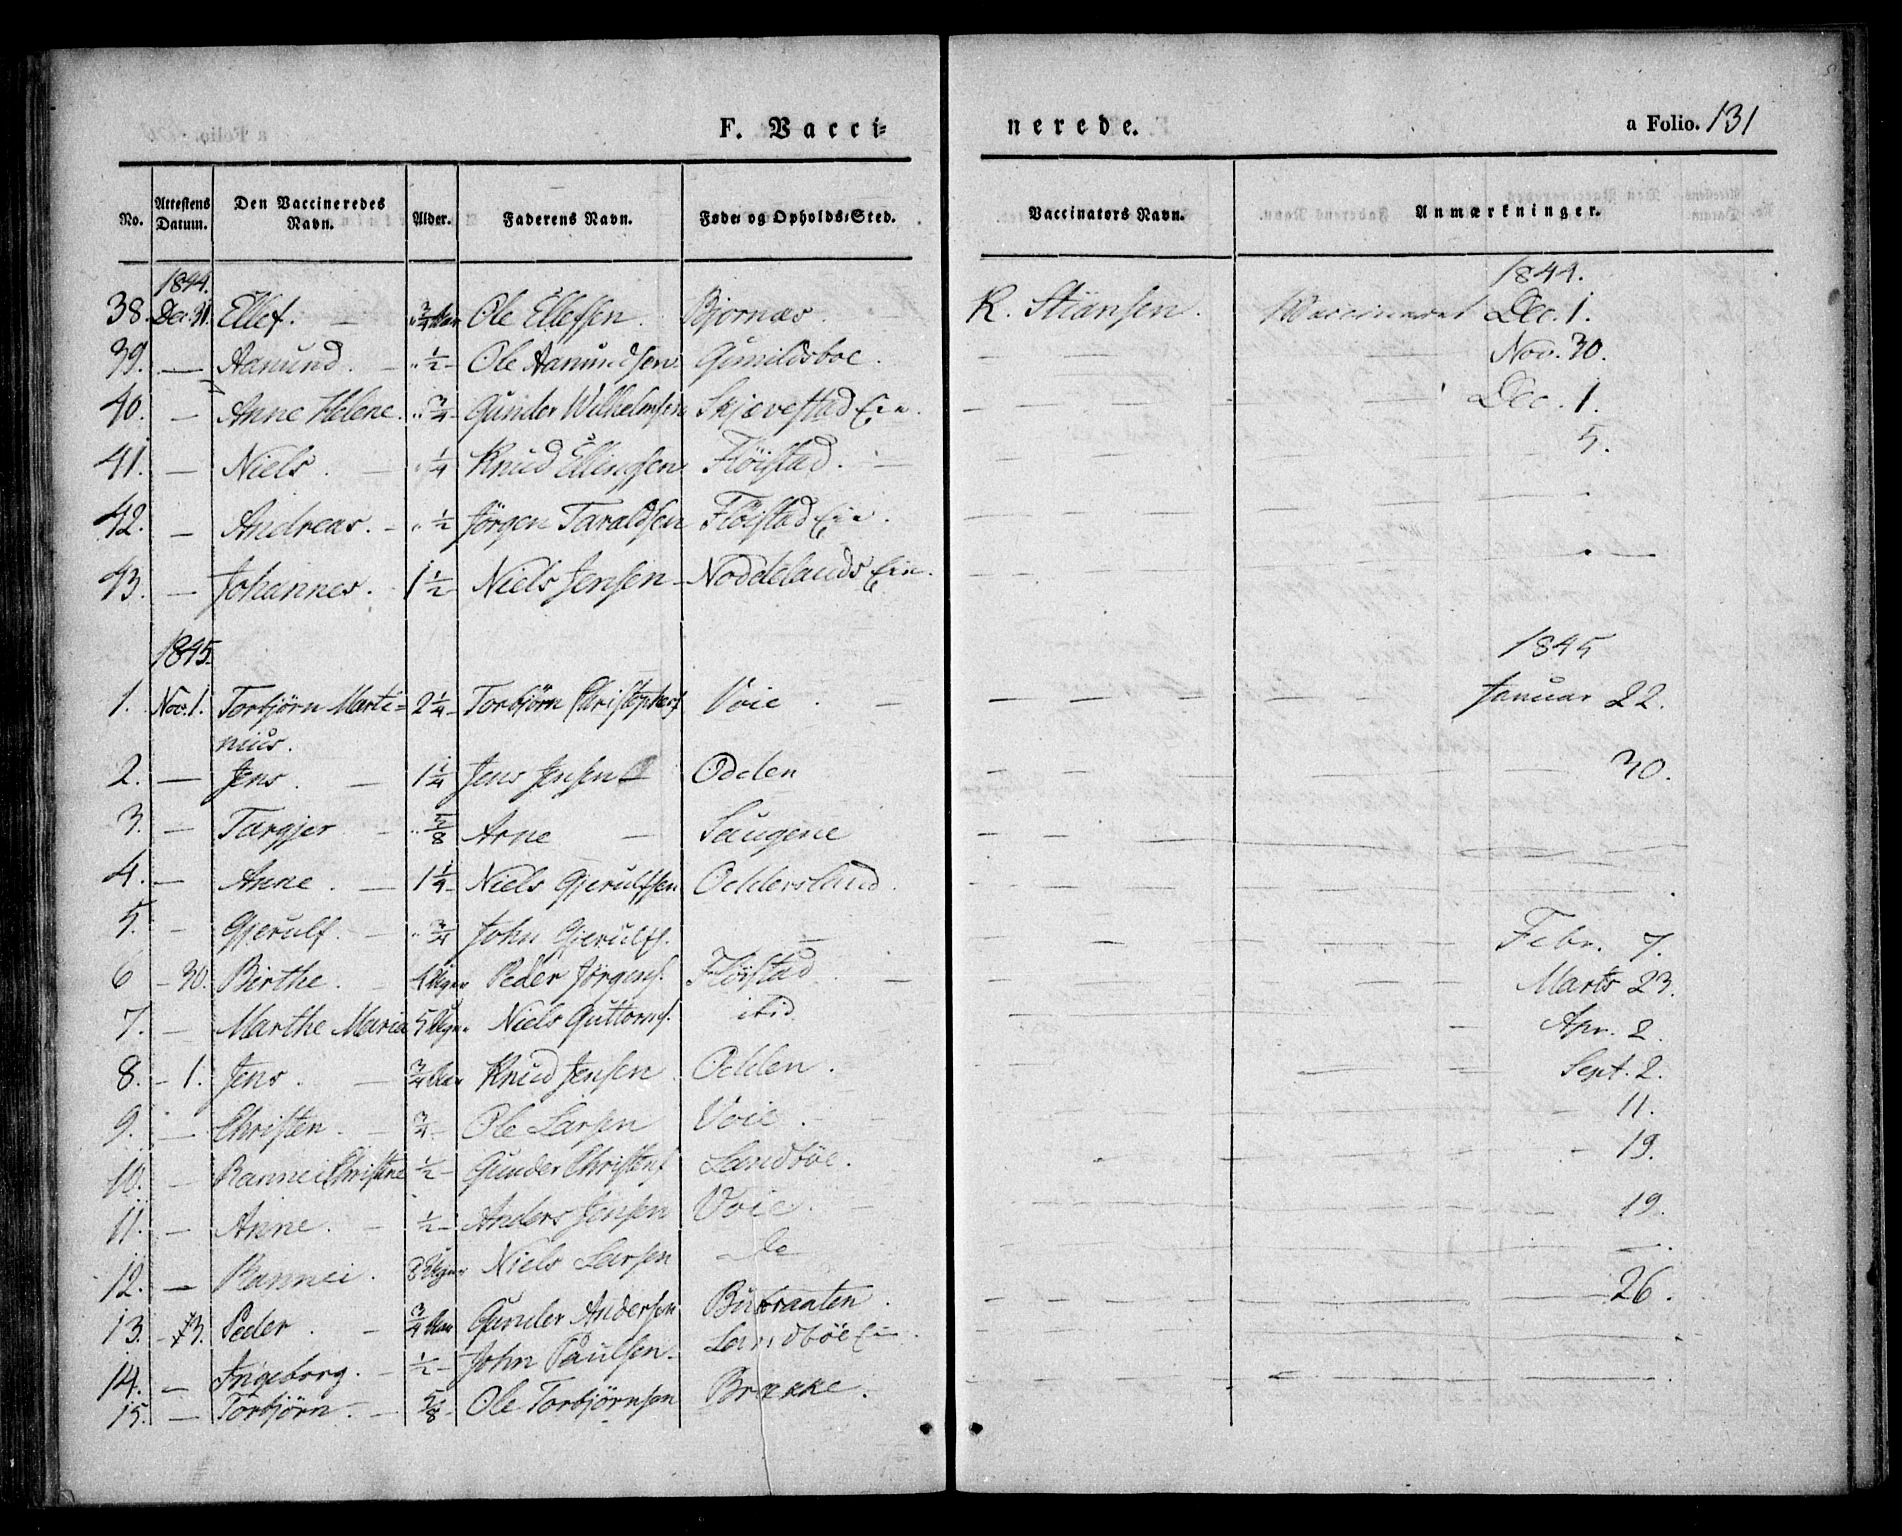 F. Vacci= nerede. a Folio. 131
No. Attestens Datum. Den Vaccineredes Navn. Alder. Faderens Navn. Føde= og Opholds=Sted. Vaccinators Navn. Anmærkninger.
1844. 1844.
38. Dec 31. Ellef. — " 3/4 Aar Ole Ellefsen. Bjornæs. K. Stiansen. Vaccineret Dec. 1.
39. — Aanund. — " 1/2 — Ole Aanundsen. Gunildsboe. — — Nov. 30.
40. — Anne Helene. " 3/4 — Gunder Wilhelmsen Skjævestad Eie. — — Dec. 1.
41. — Niels. — " 1/4 Knud Ellingsen Fløistad. — 5.
42. — Andreas. — " 1/2 — Jörgen Taraldsen Fløistad Eie. — —
43. — Johannes. 1 1/2 — Niels Jensen — Noddelands Eie. — — —
1845. 1845
1. Nov. 1. Torbjörn Marti= 2 1/4 — Torbjörn Christophers Voie. — — Januar 22.
nius.
2. — Jens. — 1 1/4 Jens Jensen Odden — — 30.
3. — Targjer — " 5/8 Arne — Saugene — —
4. — Anne. — 1 1/4 — Niels Gjerulfsen Oddersland. — —
5. — Gjerulf. — " 3/4 — John Gjerulfs. — — Febr. 7.
6 — 30. Birthe. Peder Jörgens. Fløistad. — — Marts 23.
7. — Marthe Maria 5 Uger Niels Guttorms. ibid — Apr. 2.
8. — 1. Jens. — 3/4 Aar Knud Jensen. Odden. — Sept. 2.
9. — Christen. — 3/4 — Ole Larsen Voie. — — 11.
10. — Rannei Christine 1/2 — Gunder Christens. Landböe. — 19.
11. — Anne. — 1/2 — Anders Jensen Voie. — — 19.
12. — Rannei. 8 Uger Niels Larsen — do — —
13. — Peder. — 3/4 Aar Gunder Andersen Buberaaten. — — 26.
14. — Ingeborg. — 1/2 — John Paulsen — Landböe Eie. — —
15. — Torbjörn — 5/8 Ole Torbjörnsen Brække. — —